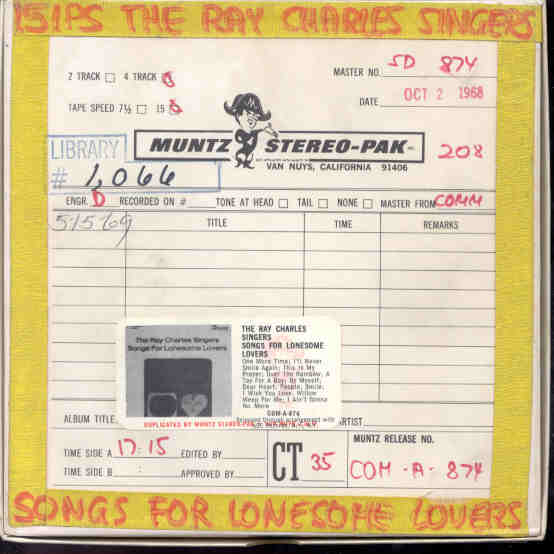 15IPS THE RAY CHARLES SINGERS
2 TRACK 4 TRACK
MASTER NO. SD 874
TAPE SPEED 7½ 15
DATE OCT 2 1968
LIBRARY
# 1,066
MUNTZ STEREO-PAK INC.
VAN NUYS, CALIFORNIA 91406
208
ENGR. D RECORDED ON # TONE AT HEAD TAIL NONE MASTER FROM COMM
5/5/69
TITLE TIME REMARKS
The Ray Charles Singers
Songs For Lonesome Lovers
THE RAY CHARLES
SINGERS
SONGS FOR LONESOME
LOVERS
One More Time; I'll Never
Smile Again; This Is My
Prayer; Over The Rainbow; A
Toy For A Boy; By Myself;
Dear Heart; People; Smile;
I Wish You Love; Willow
Weep For Me; I Ain't Gonna
No More
COM-A-874
Released through arrangement with
DUPLICATED BY MUNTZ STEREO-PAK
ALBUM TITLE ARTIST
TIME SIDE A 17:15 EDITED BY
TIME SIDE B : APPROVED BY
CT 35
MUNTZ RELEASE NO.
COM-A-874
SONGS FOR LONESOME LOVERS